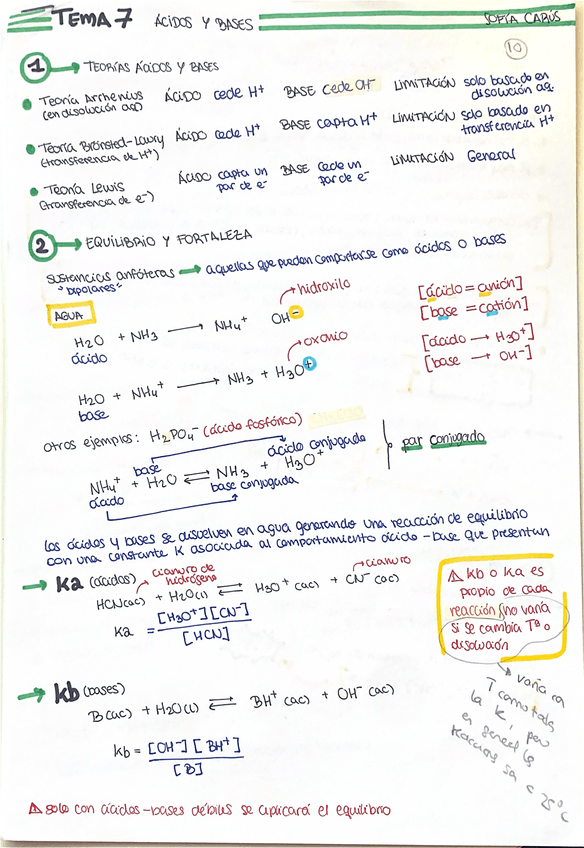 TEMA 7 ÁCIDOS Y BASES SOFÍA CABÚS
10
1 → TEORÍAS ÁCIDOS Y BASES
• Teoría Arrhenius (en disolución aq) ÁCIDO cede H⁺ BASE cede OH⁻ LIMITACIÓN solo basado en disolución aq.
• Teoría Brönsted-Lowry (transferencia de H⁺) ÁCIDO cede H⁺ BASE capta H⁺ LIMITACIÓN solo basado en transferencia H⁺
• Teoría Lewis (transferencia de e⁻) ÁCIDO capta un par de e⁻ BASE cede un par de e⁻ LIMITACIÓN General
2 → EQUILIBRIO Y FORTALEZA
Sustancias anfóteras → aquellas que pueden comportarse como ácidos o bases
"bipolares"
AGUA
hidroxilo
H₂O + NH₃ → NH₄⁺ OH⁻
ácido
[ácido = anión]
[base = catión]
[ácido → H₃O⁺]
[base → OH⁻]
oxonio
H₂O + NH₄⁺ → NH₃ + H₃O⁺
base
otros ejemplos: H₂PO₄⁻ (ácido fosfórico)
base ácido conjugada
NH₄⁺ + H₂O ⇌ NH₃ + H₃O⁺
ácido base conjugada
par conjugado
Los ácidos y bases se disuelven en agua generando una reacción de equilibrio
con una constante K asociada al comportamiento ácido-base que presentan
→ Ka (ácidos) cianuro de hidrógeno cianuro
HCN(ac) + H₂O(l) ⇌ H₃O⁺ (ac) + CN⁻ (ac)
Ka = [H₃O⁺][CN⁻] / [HCN]
⚠ Kb o Ka es
propio de cada
reacción (no varía
si se cambia Tª o
disolución
→ Kb (bases)
B(ac) + H₂O(l) ⇌ BH⁺ (ac) + OH⁻ (ac)
Kb = [OH⁻][BH⁺] / [B]
varía con
T
la K, pero
en general las
reacciones son a 25ºC
⚠ solo con ácidos-bases débiles se aplicará el equilibrio